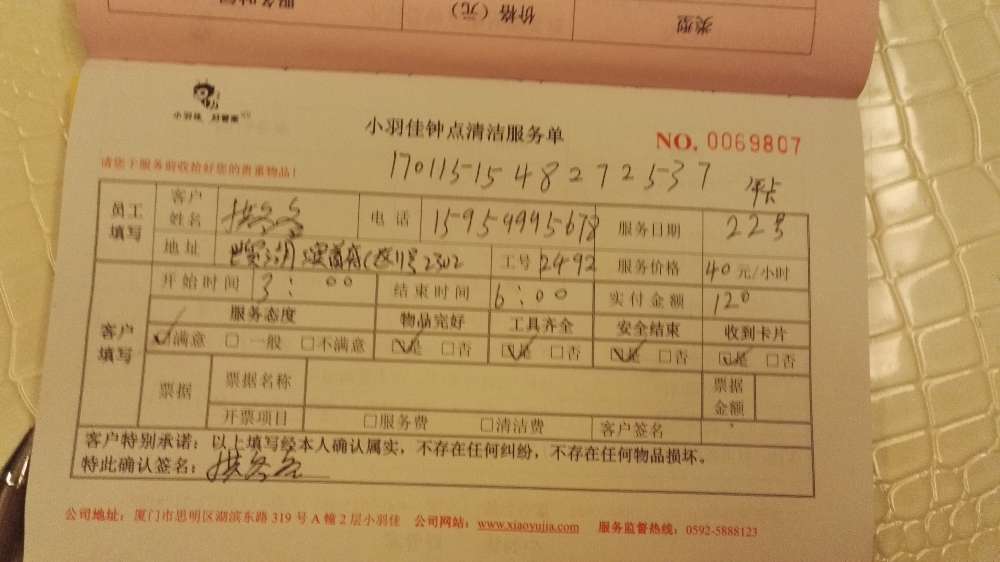 服务时间 价格（元） 类型
小羽佳 好管家
小羽佳钟点清洁服务单
NO. 0069807
请您于服务前收拾好您的贵重物品！
170115154827 2537
员工填写 客户姓名 电话 15959995678 服务日期 22号
地址 2302 工号 2492 服务价格 40元/小时
开始时间 3：00 结束时间 6：00 实付金额 120
客户填写 服务态度 物品完好 工具齐全 安全结束 收到卡片
☑满意 □一般 □不满意 ☑是 □否 ☑是 □否 ☑是 □否 ☑是 □否
票据 票据名称 票据金额
开票项目 □服务费 □清洁费 客户签名
客户特别承诺：以上填写经本人确认属实，不存在任何纠纷，不存在任何物品损坏。
特此确认签名：
公司地址：厦门市思明区湖滨东路319号A幢2层小羽佳 公司网站：www.xiaoyujia.com 服务监督热线：0592-5888123